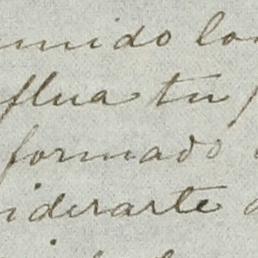 umido lo
flua tu
formado
iderarte